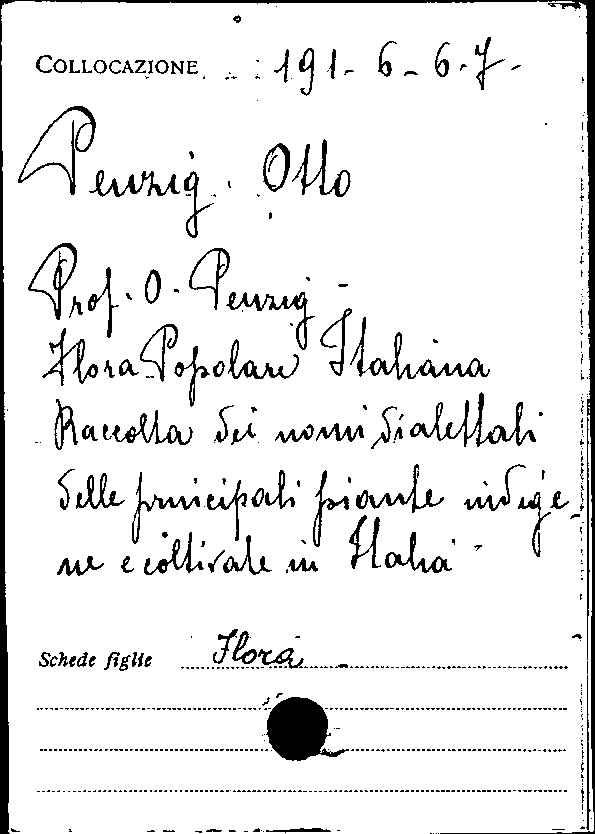 COLLOCAZIONE 191-6-6-7-
Penzig. Otto
Prof. O. Penzig -
Flora Popolare Italiana
Raccolta dei nomi dialettali
delle principali piante indige-
ne e coltivate in Italia -
Schede figlie Flora